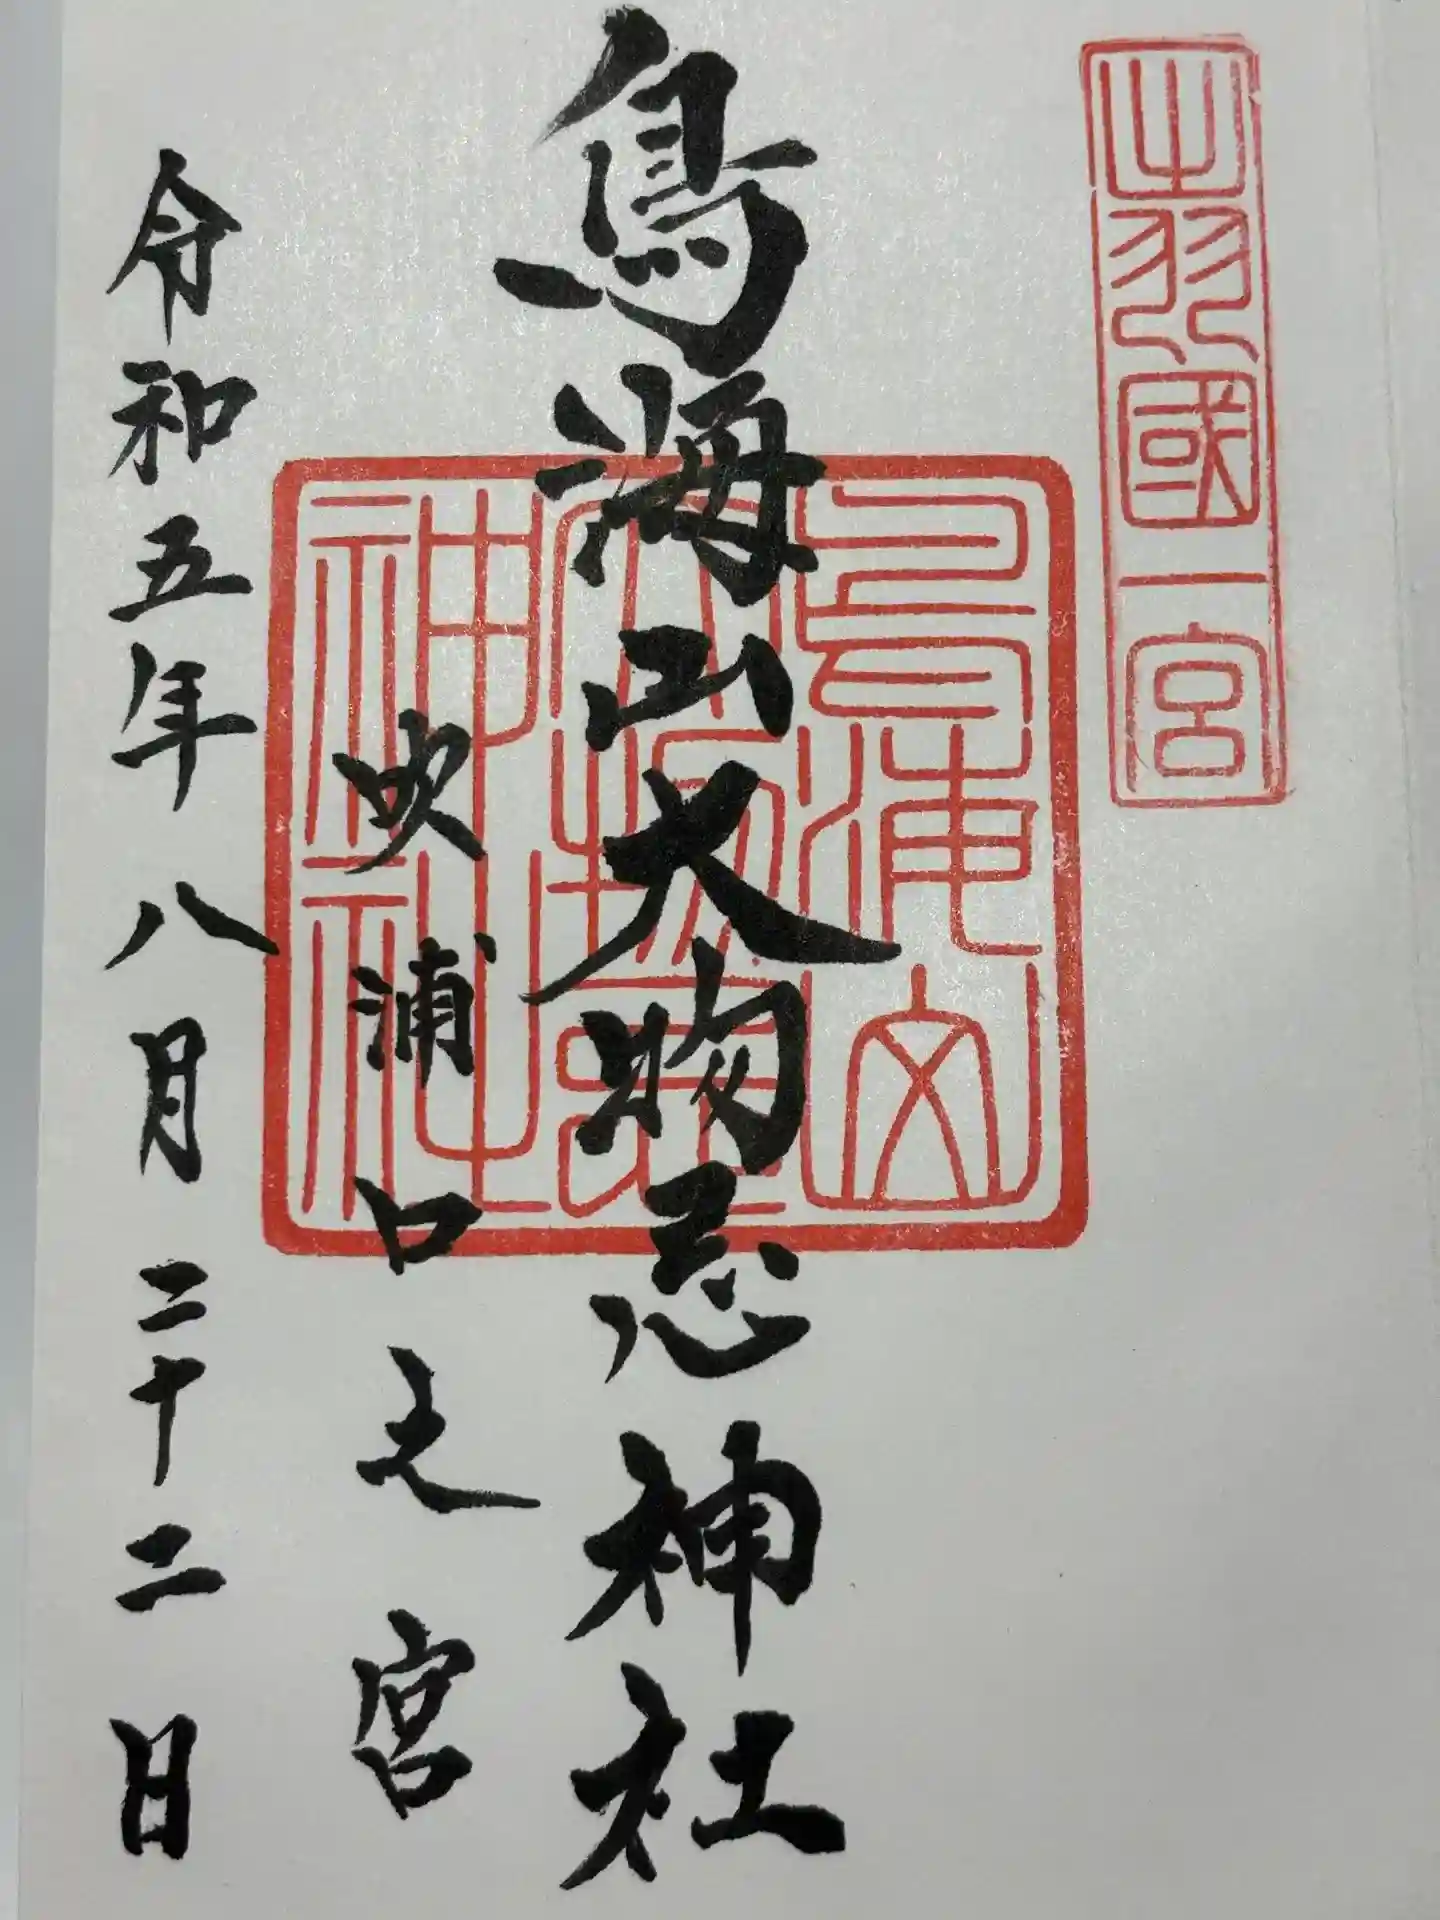 出羽國一宮
鳥海山
大物忌
神社
鳥海山大物忌神社
吹浦口之宮
令和五年八月二十二日